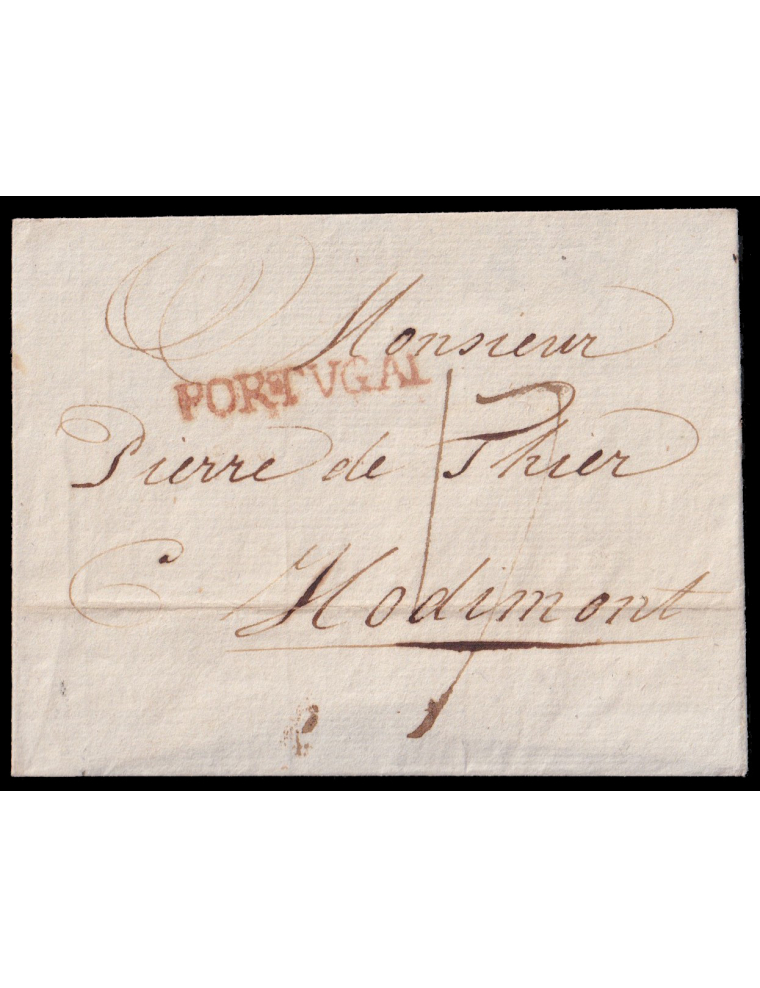 Monsieur
PORTVGAL
Pierre de Thier
Hodimont